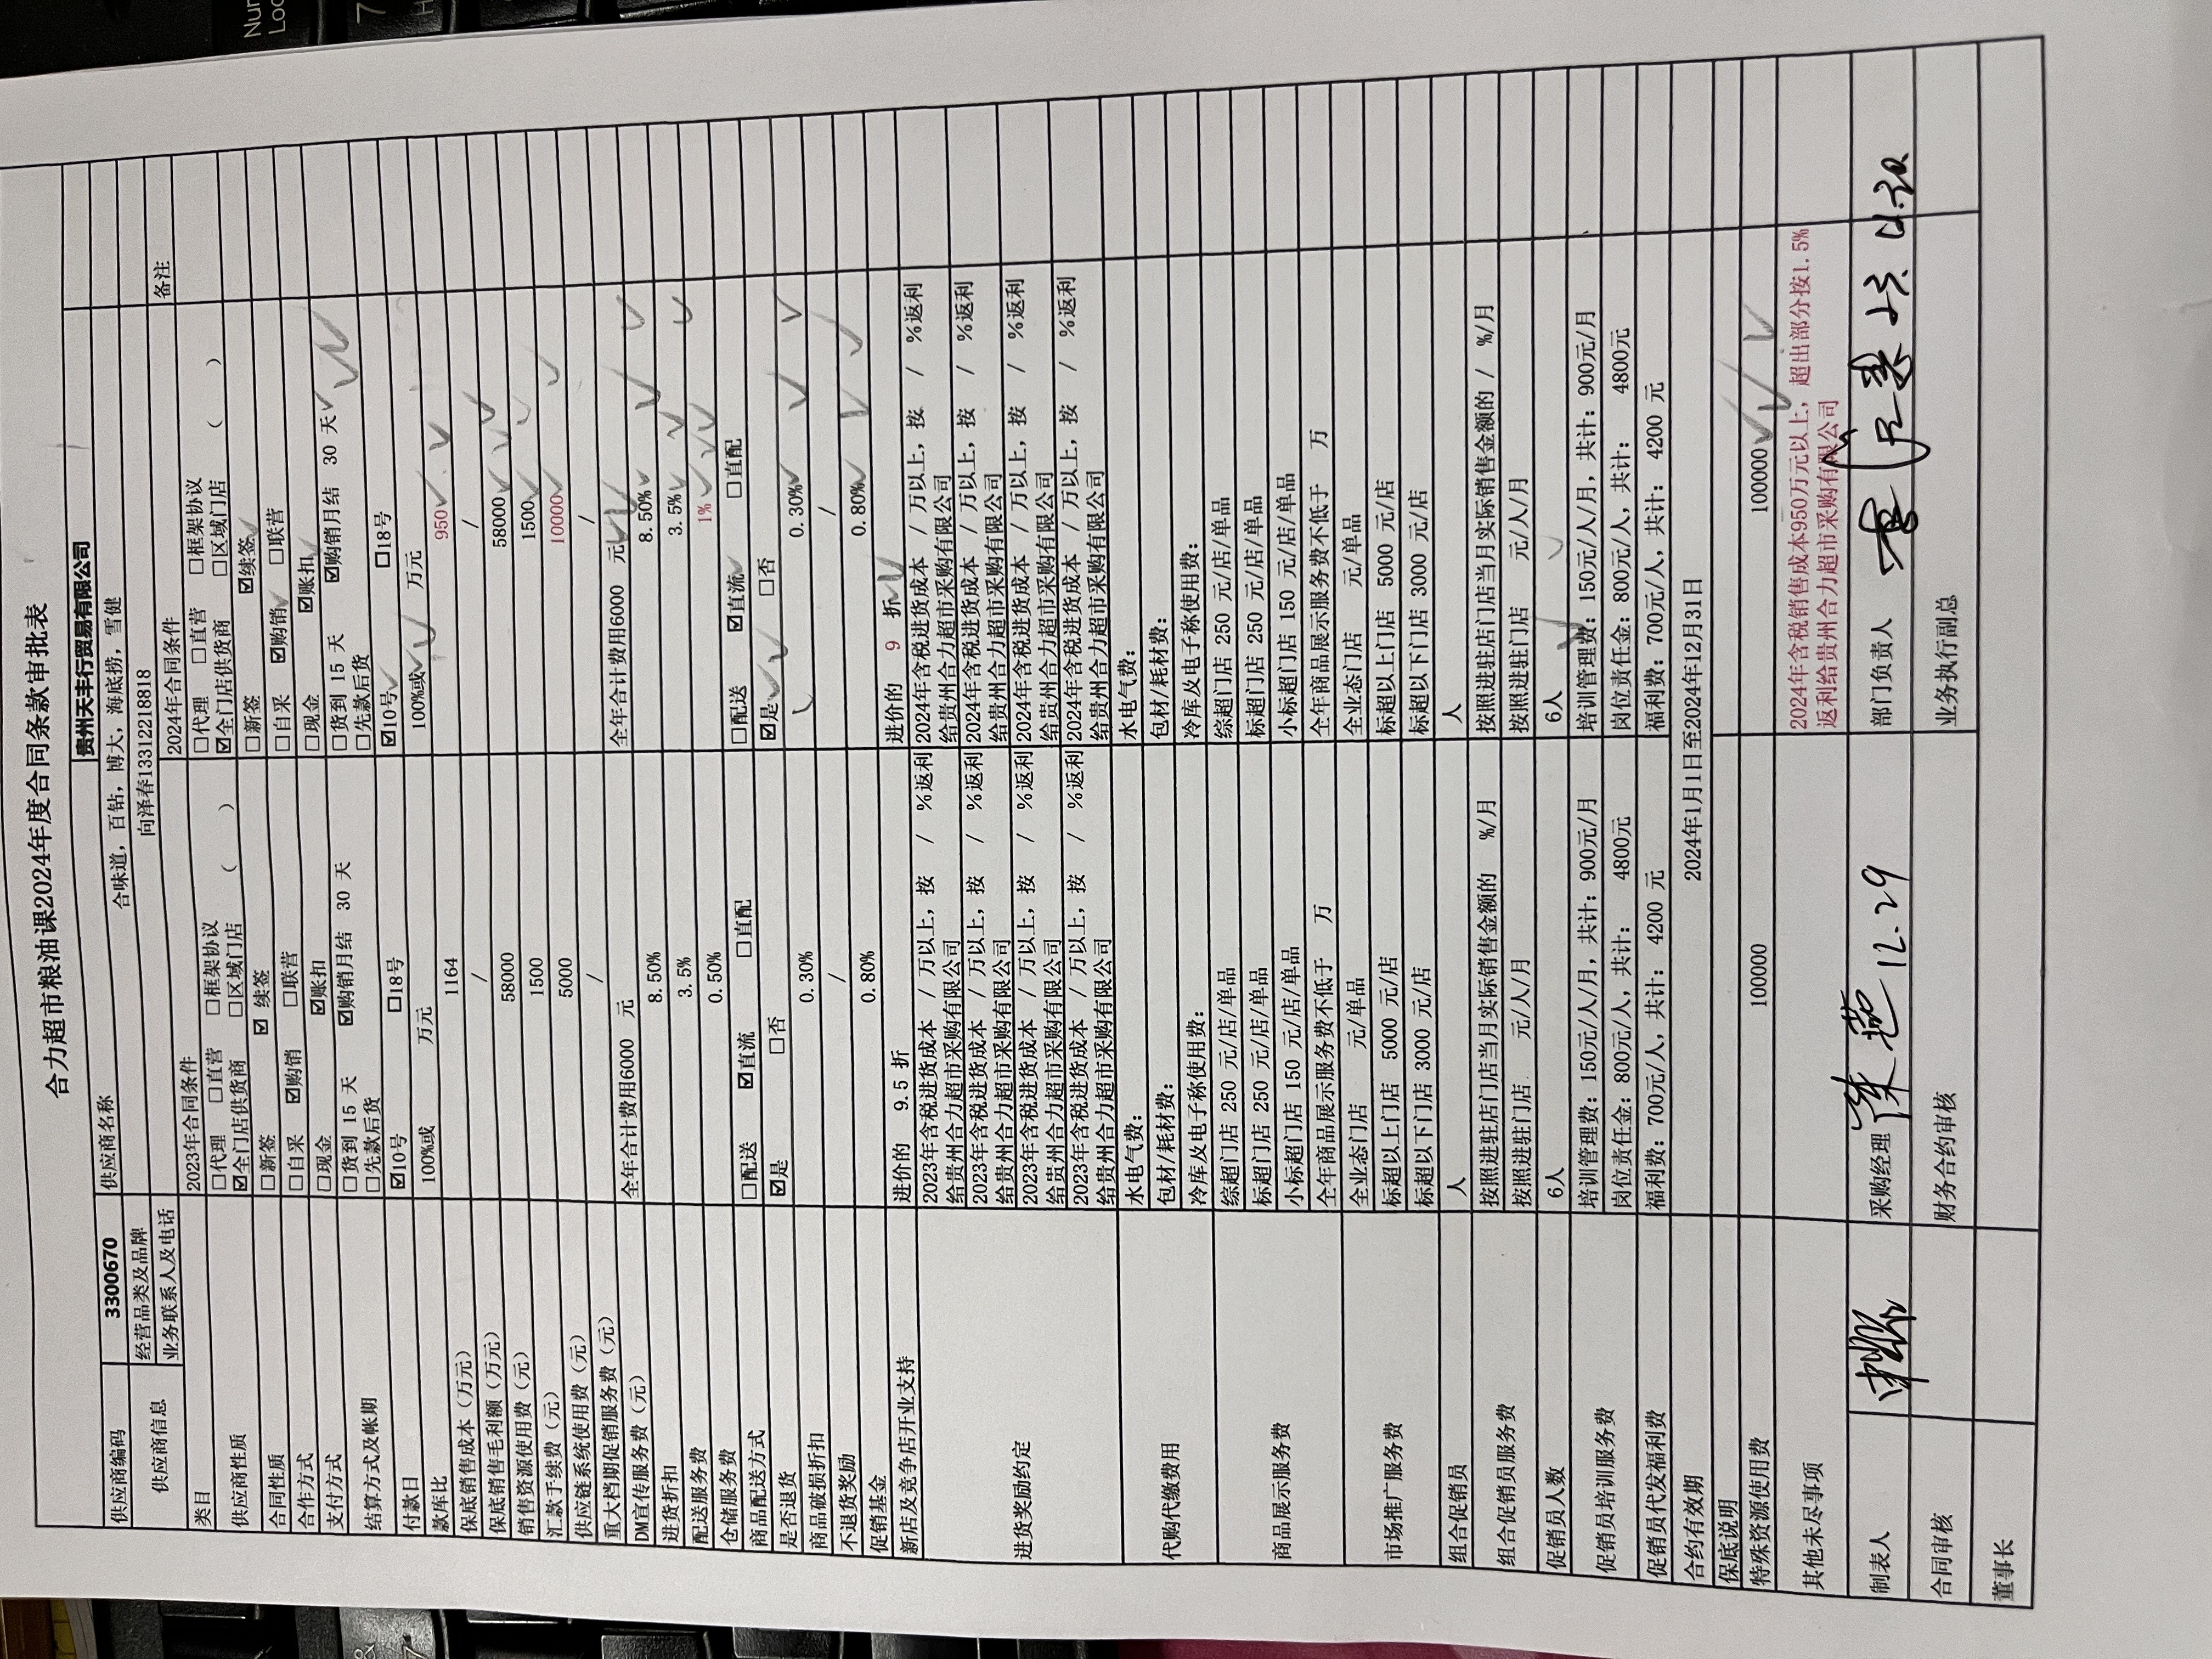 合力超市粮油课2024年度合同条款审批表
供应商编码 3300670 供应商名称 贵州天丰行贸易有限公司
供应商信息 经营品类及品牌 合味道，百钻，博大，海底捞，雪健
业务联系人及电话 向泽春13312218818
类目 2023年合同条件 2024年合同条件 备注
供应商性质 □代理 □直营 □框架协议 □代理 □直营 □框架协议
☑全门店供货商 □区域门店 （ ） ☑全门店供货商 □区域门店 （ ）
合同性质 □新签 ☑ 续签 □新签 ☑续签
合作方式 □自采 ☑购销 □联营 □自采 ☑购销 □联营
支付方式 □现金 ☑账扣 □现金 ☑账扣
结算方式及帐期 □货到 15 天 ☑购销月结 30 天 □货到 15 天 ☑购销月结 30 天
□先款后货 □先款后货
付款日 ☑10号 □18号 ☑10号 □18号
款库比 100%或 万元 100%或 万元
保底销售成本（万元） 1164 950
保底销售毛利额（万元） / /
销售资源使用费（元） 58000 58000
汇款手续费（元） 1500 1500
供应链系统使用费（元） 5000 10000
重大档期促销服务费（元） / /
DM宣传服务费（元） 全年合计费用6000 元 全年合计费用6000 元
进货折扣 8.50% 8.50%
配送服务费 3.5% 3.5%
仓储服务费 0.50% 1%
商品配送方式 □配送 ☑直流 □直配 □配送 ☑直流 □直配
是否退货 ☑是 □否 ☑是 □否
商品破损折扣 0.30% 0.30%
不退货奖励 / /
促销基金 0.80% 0.80%
新店及竞争店开业支持 进价的 9.5 折 进价的 9 折
进货奖励约定 2023年含税进货成本 / 万以上，按 / %返利 2024年含税进货成本 / 万以上，按 / %返利
给贵州合力超市采购有限公司 给贵州合力超市采购有限公司
2023年含税进货成本 / 万以上，按 / %返利 2024年含税进货成本 / 万以上，按 / %返利
给贵州合力超市采购有限公司 给贵州合力超市采购有限公司
2023年含税进货成本 / 万以上，按 / %返利 2024年含税进货成本 / 万以上，按 / %返利
给贵州合力超市采购有限公司 给贵州合力超市采购有限公司
2023年含税进货成本 / 万以上，按 / %返利 2024年含税进货成本 / 万以上，按 / %返利
给贵州合力超市采购有限公司 给贵州合力超市采购有限公司
代购代缴费用 水电气费： 水电气费：
包材/耗材费： 包材/耗材费：
冷库及电子称使用费： 冷库及电子称使用费：
商品展示服务费 综超门店 250 元/店/单品 综超门店 250 元/店/单品
标超门店 250 元/店/单品 标超门店 250 元/店/单品
小标超门店 150 元/店/单品 小标超门店 150 元/店/单品
全年商品展示服务费不低于 万 全年商品展示服务费不低于 万
市场推广服务费 全业态门店 元/单品 全业态门店 元/单品
标超以上门店 5000 元/店 标超以上门店 5000 元/店
标超以下门店 3000 元/店 标超以下门店 3000 元/店
组合促销员 人 人
组合促销员服务费 按照进驻店门店当月实际销售金额的 %/月 按照进驻店门店当月实际销售金额的 / %/月
按照进驻门店 元/人/月 按照进驻门店 元/人/月
促销员人数 6人 6人
促销员培训服务费 培训管理费：150元/人/月，共计：900元/月 培训管理费：150元/人/月，共计：900元/月
岗位责任金：800元/人，共计： 4800元 岗位责任金：800元/人，共计： 4800元
促销员代发福利费 福利费：700元/人，共计： 4200 元 福利费：700元/人，共计： 4200 元
合约有效期 2024年1月1日至2024年12月31日
保底说明
特殊资源使用费 100000 100000
其他未尽事项 2024年含税销售成本950万元以上，超出部分按1.5%
返利给贵州合力超市采购有限公司
制表人 采购经理 12.29 部门负责人
合同审核 财务合约审核 业务执行副总
董事长